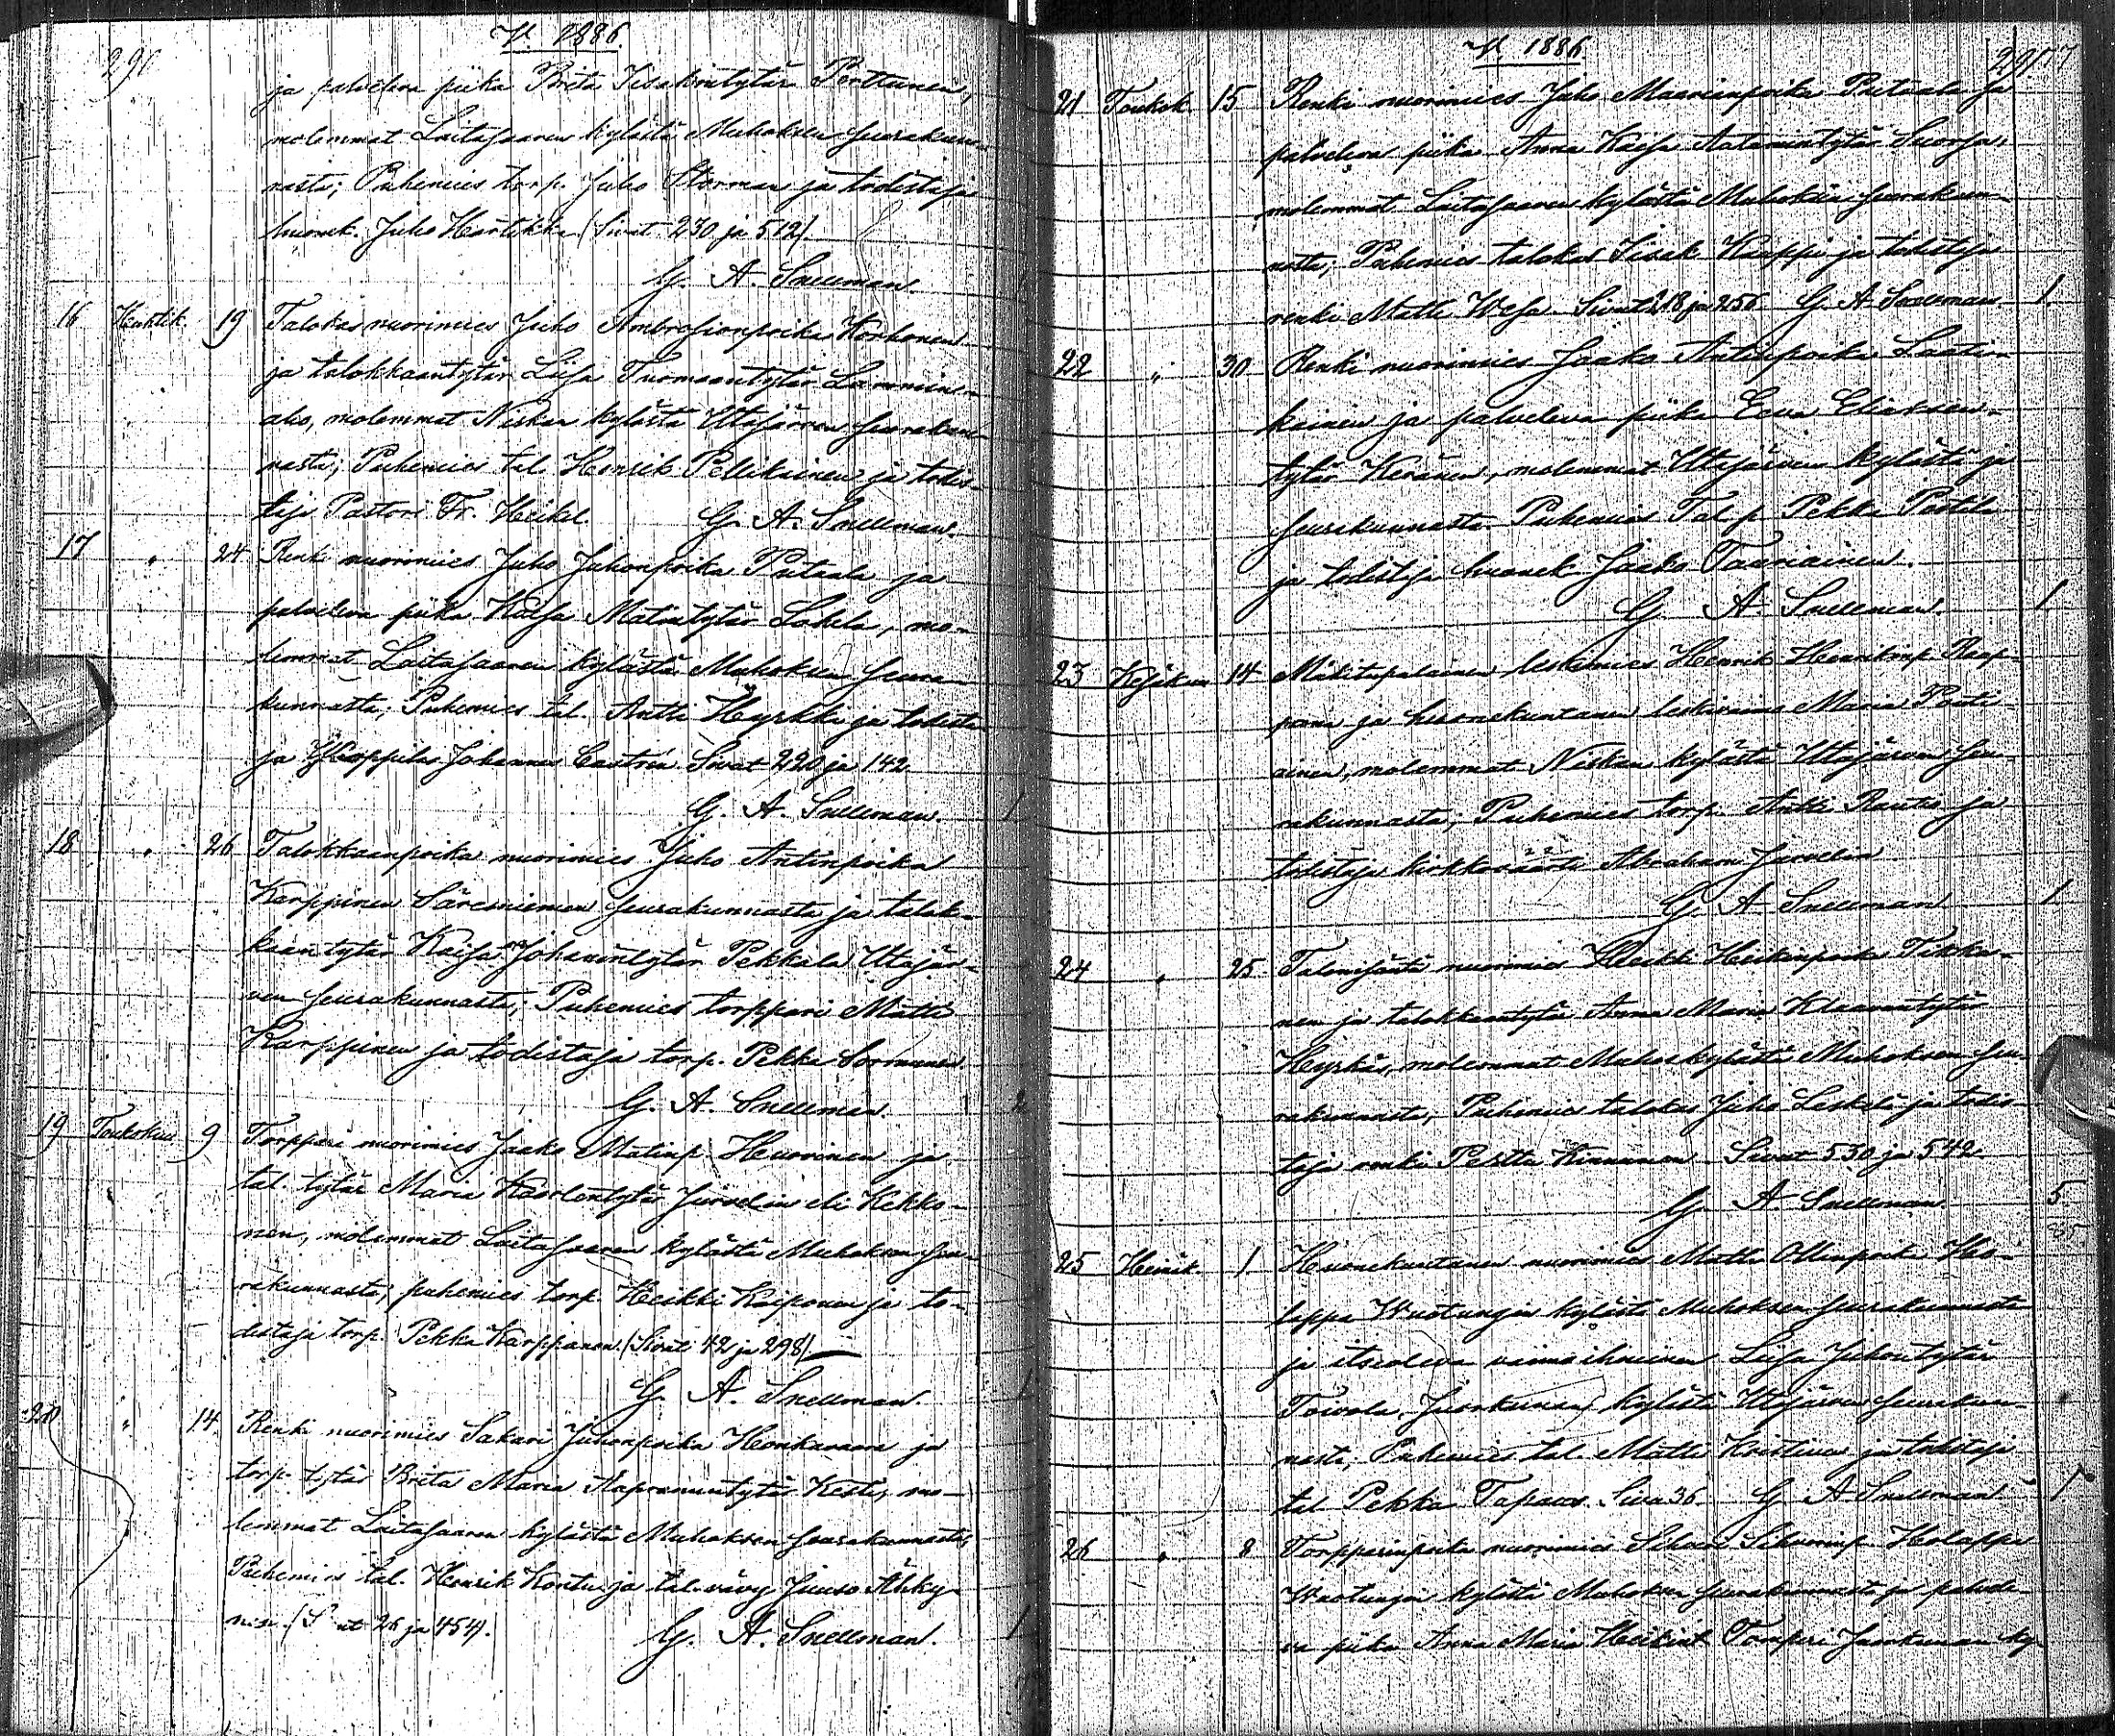 290
V. 1886.
ja palveleva piika Brita Iisakintytär Perttunen,
molemmat Laitasaaren kylästä Muhoksen seurakun-
nasta; Puhemies torp. Juho Storman ja todistaja
huonek. Juho Hartikka (Sivut 230 ja 512).
G. A. Snellman.
16 Huhtik. 19 Talokas nuorimies Juho Ambrosionpoika Korhonen
ja talokkaantytär Liisa Tuomaantytär Lammin-
aho, molemmat Niskan kylästä Utajärven seurakun-
nasta; Puhemies tal. Henrik Pellikainen ja todis-
taja Pastori Fr. Heikel. G. A. Snellman.
17 " 24 Renki nuorimies Juho Juhonpoika Pietaala ja
palveleva piika Kaisa Matintytär Lokela, mo-
lemmat Laitasaaren kylästä Muhoksen seura-
kunnasta; Puhemies tal. Antti Hyrkki ja todista-
ja Ylioppilas Johannes Castrén Sivut 220 ja 142
G. A. Snellman. 1
18 " 26 Talokkaanpoika nuorimies Juho Antinpoika
Karppinen Säresniemen seurakunnasta ja talok-
kaantytär Kaisa Johanintytär Pekkala Utajär-
ven seurakunnasta; Puhemies torppari Matti
Karppinen ja todistaja torp. Pekka Sormunen
G. A. Snellman. 2
19 Toukokuu 9 Torppari nuorimies Jaako Matinp. Huovinen ja
tal. tytär Maria Kaarlentytär Järvelin eli Kekko-
nen, molemmat Laitasaaren kylästä Muhoksen seu-
rakunnasta; puhemies torp. Heikki Kaiponen ja to-
distaja torp. Pekka Karppanen (Sivut 42 ja 298)
G. A. Snellman. 1
20 " 14. Renki nuorimies Sakari Juhonpoika Honkavaara ja
torp. tytär Brita Maria Aapramintytär Kesti, mo-
lemmat Laitasaaren kylästä Muhoksen seurakunnasta;
Puhemies tal. Henrik Kontu ja tal. vävy Juuso Ähky-
nen. (Sivut 26 ja 454).
G. A. Snellman. 1
V. 1886.
291
21 Toukok. 15 Renki nuorimies Juho Maarianpoika Pietaala ja
palveleva piika Anna Kaisa Aatamintytär Suorsa,
molemmat Laitasaaren kylästä Muhoksen seurakun-
nasta; Puhemies talokas Iisak Kauppi ja todistaja
renki Matti Wesa Sivut 218 ja 256 G. A. Snellman 1.
22 " 30 Renki nuorimies Jaako Antinpoika Laati-
kainen ja palveleva piika Eeva Eliaksen-
tytär Keränen, molemmat Utajärven kylästä ja
seurakunnasta. Puhemies Tal. p. Pekka Postila
ja todistaja huonek. Jaako Taariainen.
G. A. Snellman. 1
23 Kesäkuu 14 Mäkitupalainen leskimies Henrik Henrikinp. Raap-
pana ja huonekuntanen leskivaimo Maria Pouti-
ainen, molemmat Niskan kylästä Utajärven seu-
rakunnasta; Puhemies torp. Antti Rautio ja
todistaja kirkkovääri Abraham Järvelin
G. A. Snellman 1
24 " 25 Talonisäntä nuorimies Heikki Heikinpoika Tikka-
nen ja talokkaantytär Anna Maria Klaavuntytär
Hyrkäs, molemmat Muhos kylästä Muhoksen seu-
rakunnasta; Puhemies talokas Juho Leskelä ja todis-
taja renki Pertta Kinnunen Sivut 530 ja 542
G. A. Snellman. 5
25 Heinäk. 1 Huonekuntanen nuorimies Matti Ollinpoik. Ho-
lappa Wuotungin kylästä Muhoksen seurakunnasta
ja itseoleva vaimoihminen Liisa Juhontytär
Toivola, Juorkunan kylästä Utajärven seurakun-
nasta; Puhemies tal. Matti Kristivuo ja todistaja
tal. Pekka Tapana Sivu 36. G. A. Snellman 1
26 " 8 Torpparinpoika nuorimies Sihveri Sihverinp. Holappa
Wuotungin kylästä Muhoksen seurakunnasta ja palvele-
va piika Anna Maria Heikint. Tomperi Juorkunan ky-